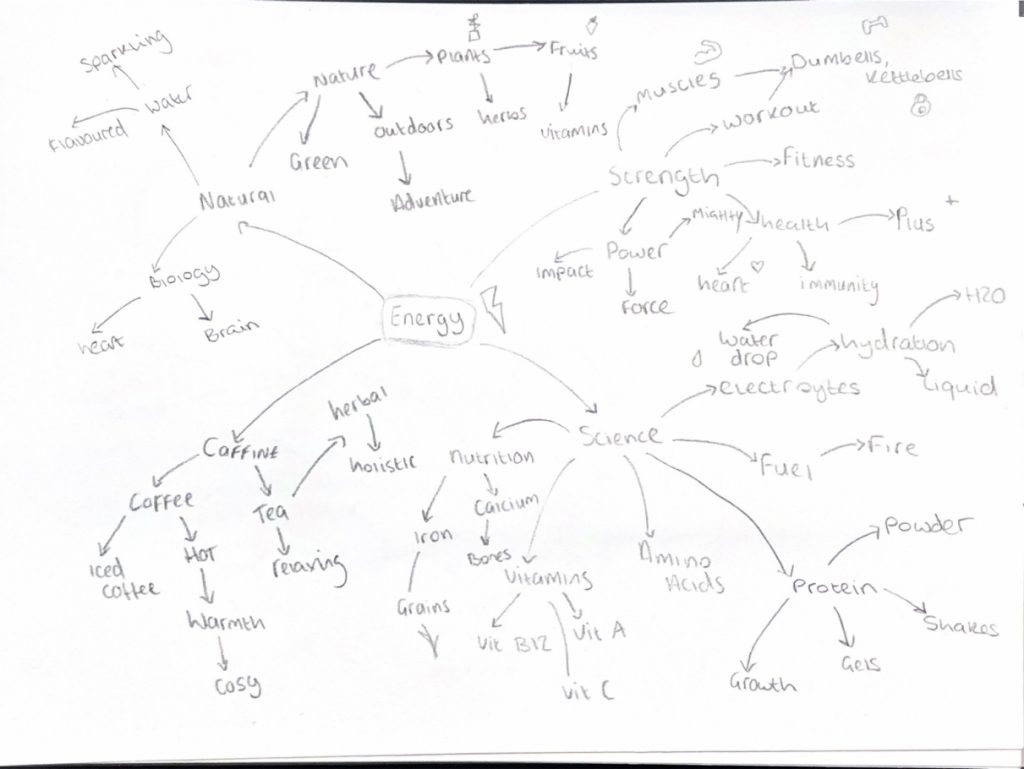 Sparkling
Water
Flavoured
Natural
Nature
Plants
Fruits
Green
Outdoors
herbs
vitamins
Adventure
Biology
heart
Brain
Energy
Strength
Muscles
Dumbells,
Kettlebells
workout
Fitness
Power
Mightty
health
Plus
+
impact
Force
heart
immunity
H2O
water
drop
hydration
electroytes
Liquid
Science
Fuel
Fire
Nutrition
Iron
Calcium
Bones
Grains
Vitamins
Vit B12
Vit A
Vit C
Amino
Acids
Protein
Powder
Shakes
Gels
Growth
Caffine
Coffee
Iced
coffee
Hot
Warmth
Cosy
Tea
relaxing
herbal
holistic